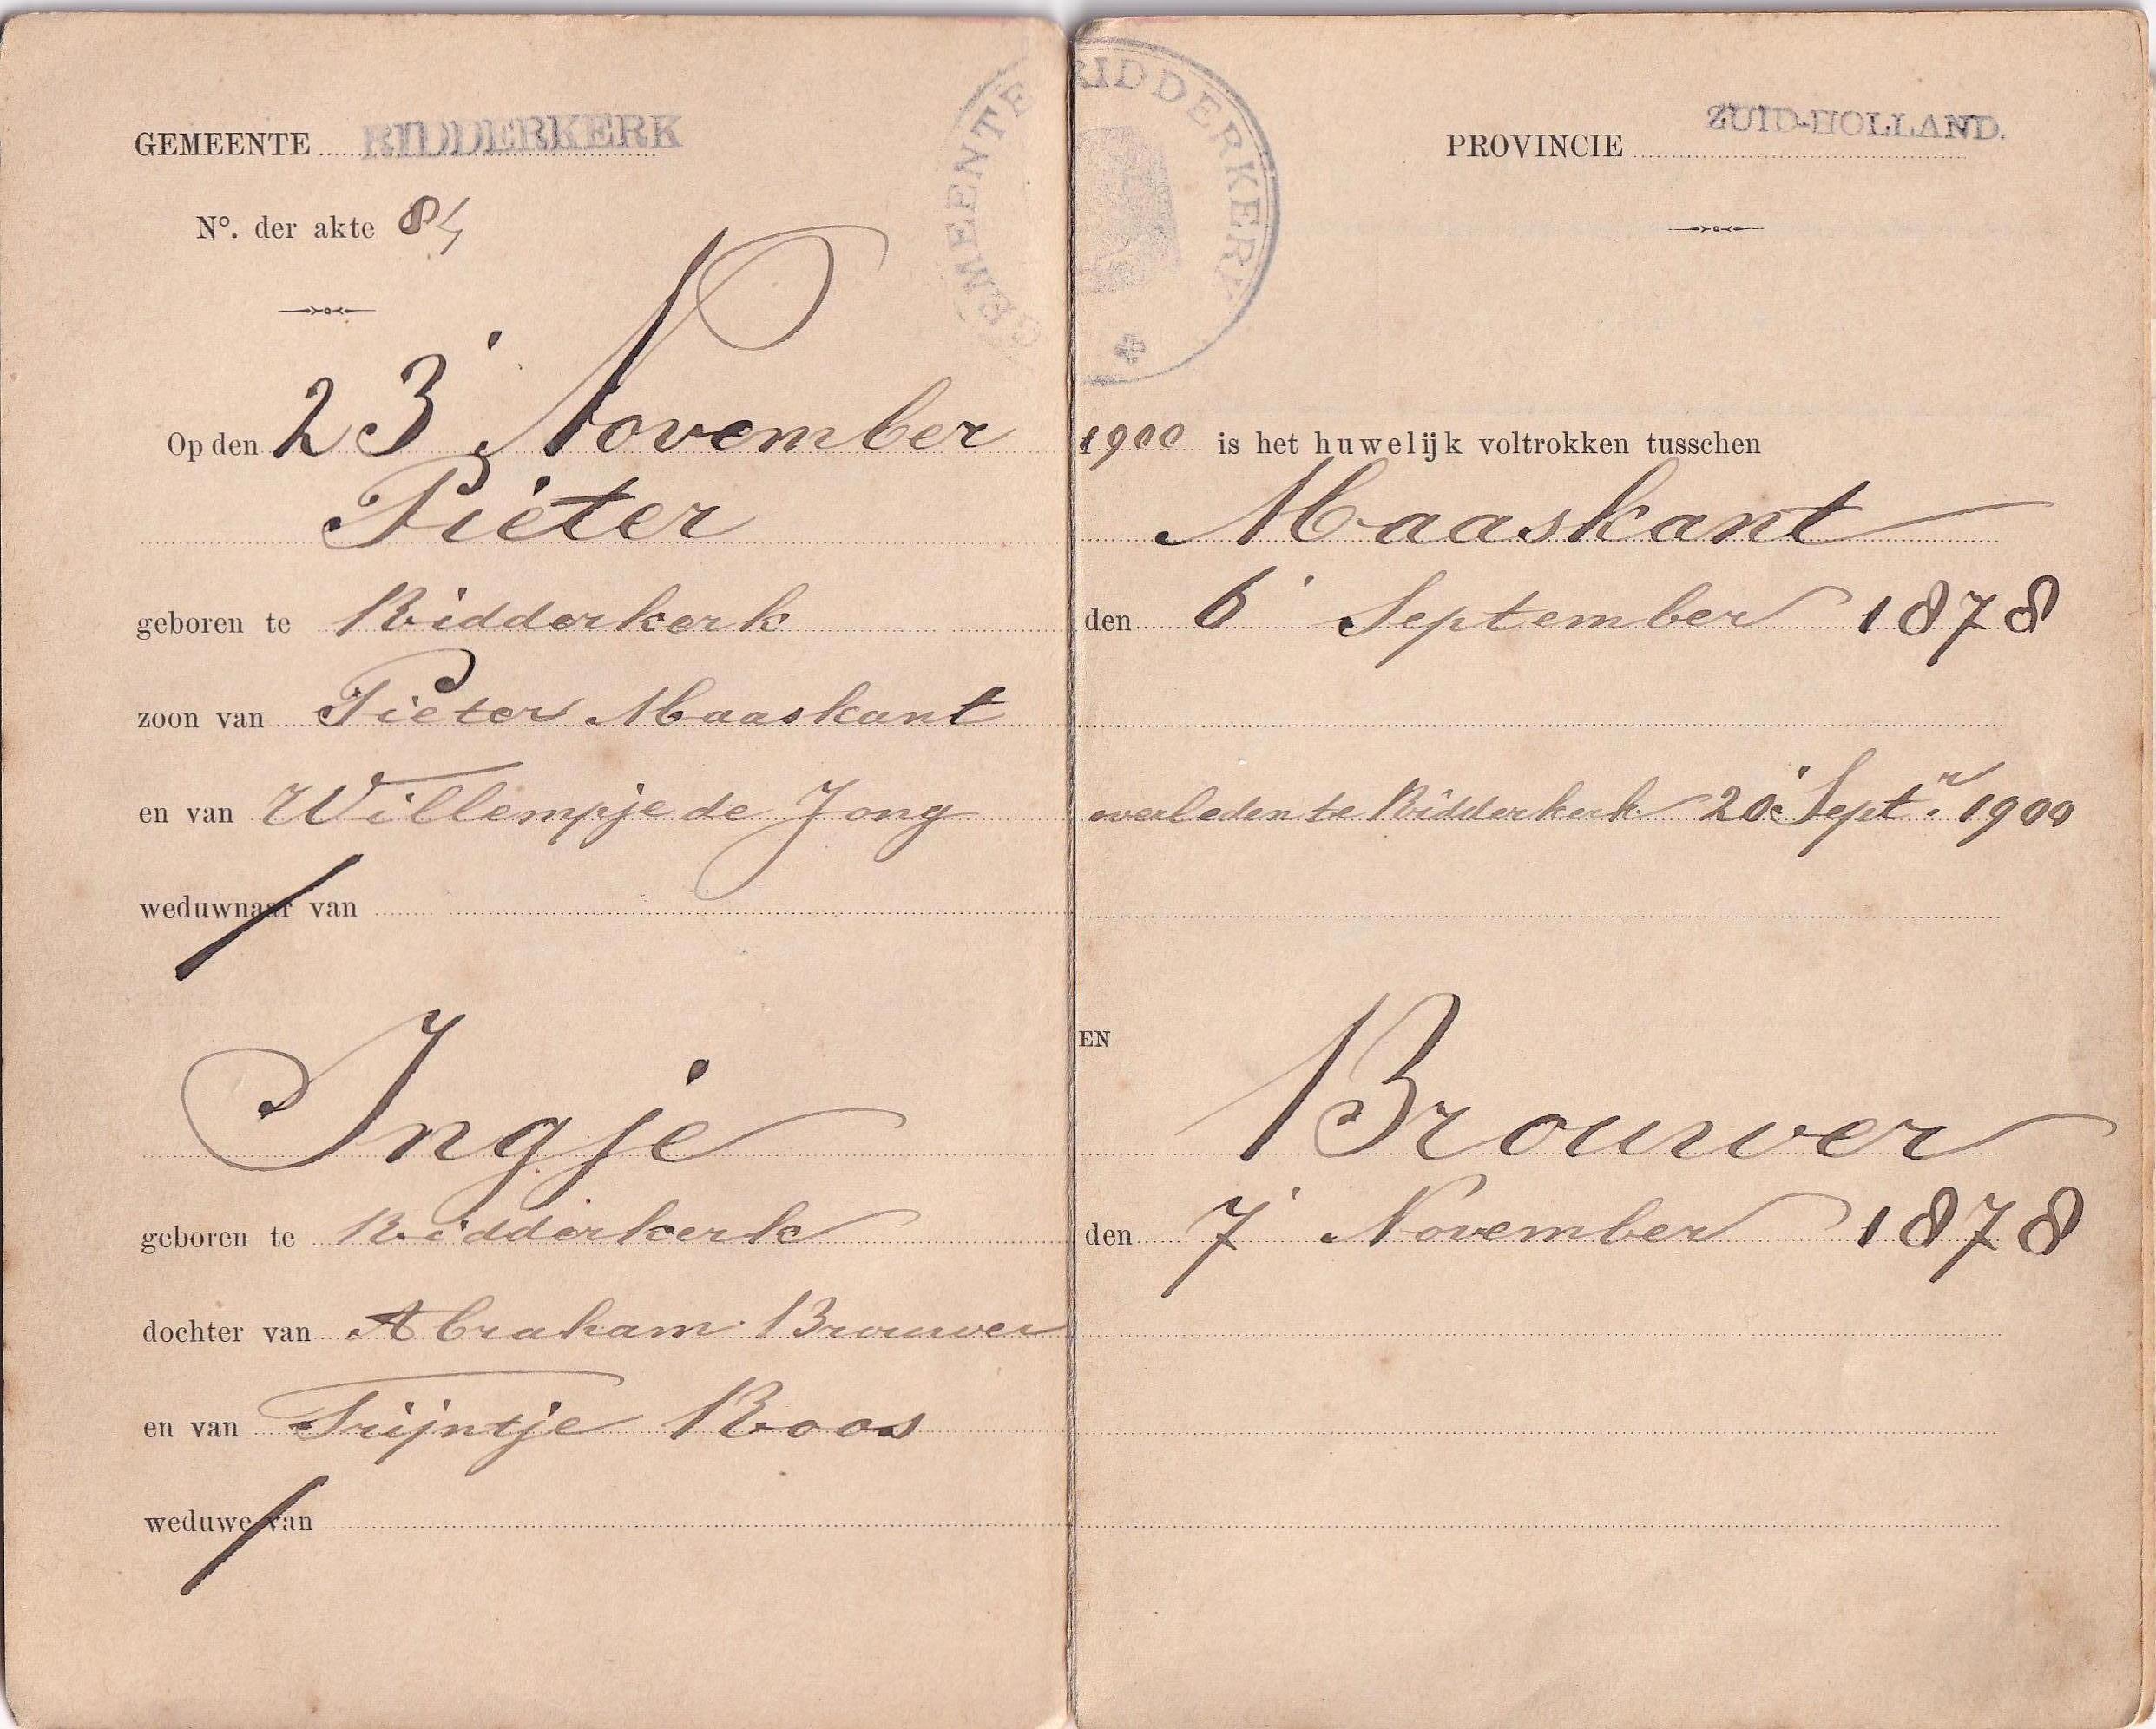 GEMEENTE RIDDERKERK
GEMEENTE RIDDERKERK
PROVINCIE ZUID-HOLLAND.
Nº. der akte 84
Op den 23 November 1900 is het huwelijk voltrokken tusschen
Pieter Maaskant
geboren te Ridderkerk den 6 September 1878
zoon van Pieter Maaskant
en van Willempje de Jong overleden te Ridderkerk 20 Septr. 1900
weduwnaar van
EN
Ingje Brouwer
geboren te Ridderkerk den 7 November 1878
dochter van Abraham Brouwer
en van Trijntje Roos
weduwe van